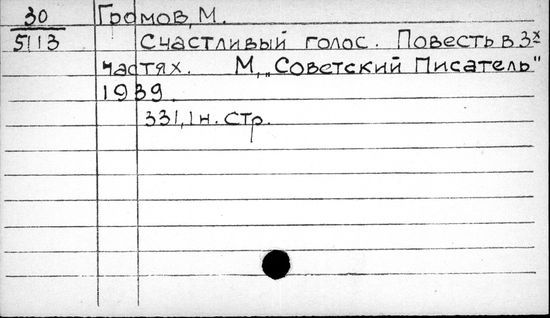 30
5113
Громов, М.
Счастливый голос. Повесть в 3х
частях. М., „Советский Писатель"
1939.
331, 1 н. стр.